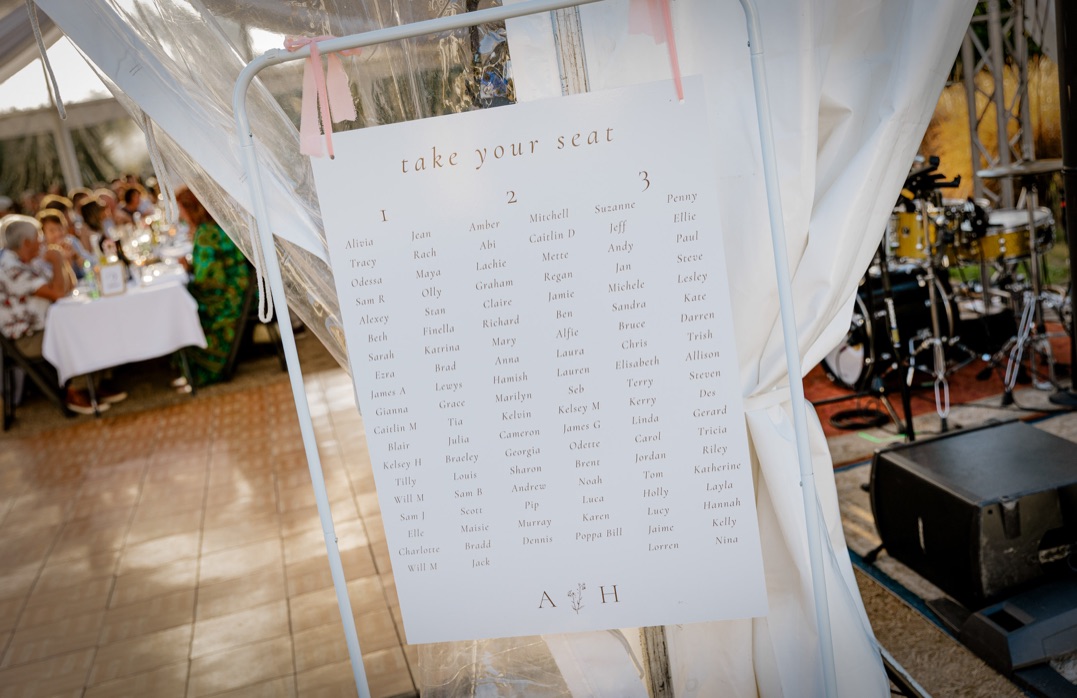 take your seat
1
Alicia
Tracy
Odessa
Sam R
Alexey
Beth
Sarah
Ezra
James A
Gianna
Caitlin M
Blair
Kelsey H
Tilly
Will M
Sam J
Elle
Charlotte
Will M
Jean
Rach
Maya
Olly
Stan
Finella
Katrina
Brad
Lewys
Grace
Tia
Julia
Braeley
Louis
Sam B
Scott
Maisie
Bradd
Jack
2
Amber
Abi
Lachie
Graham
Claire
Richard
Mary
Anna
Hamish
Marilyn
Kelvin
Cameron
Georgia
Sharon
Andrew
Pip
Murray
Dennis
Mitchell
Caitlin D
Mette
Regan
Jamie
Ben
Alfie
Laura
Lauren
Seb
Kelsey M
James G
Odette
Brent
Noah
Luca
Karen
Poppa Bill
3
Suzanne
Jeff
Andy
Jan
Michele
Sandra
Bruce
Chris
Elisabeth
Terry
Kerry
Linda
Carol
Jordan
Tom
Holly
Lucy
Jaime
Lorren
Penny
Ellie
Paul
Steve
Lesley
Kate
Darren
Trish
Allison
Steven
Des
Gerard
Tricia
Riley
Katherine
Layla
Hannah
Kelly
Nina
A H